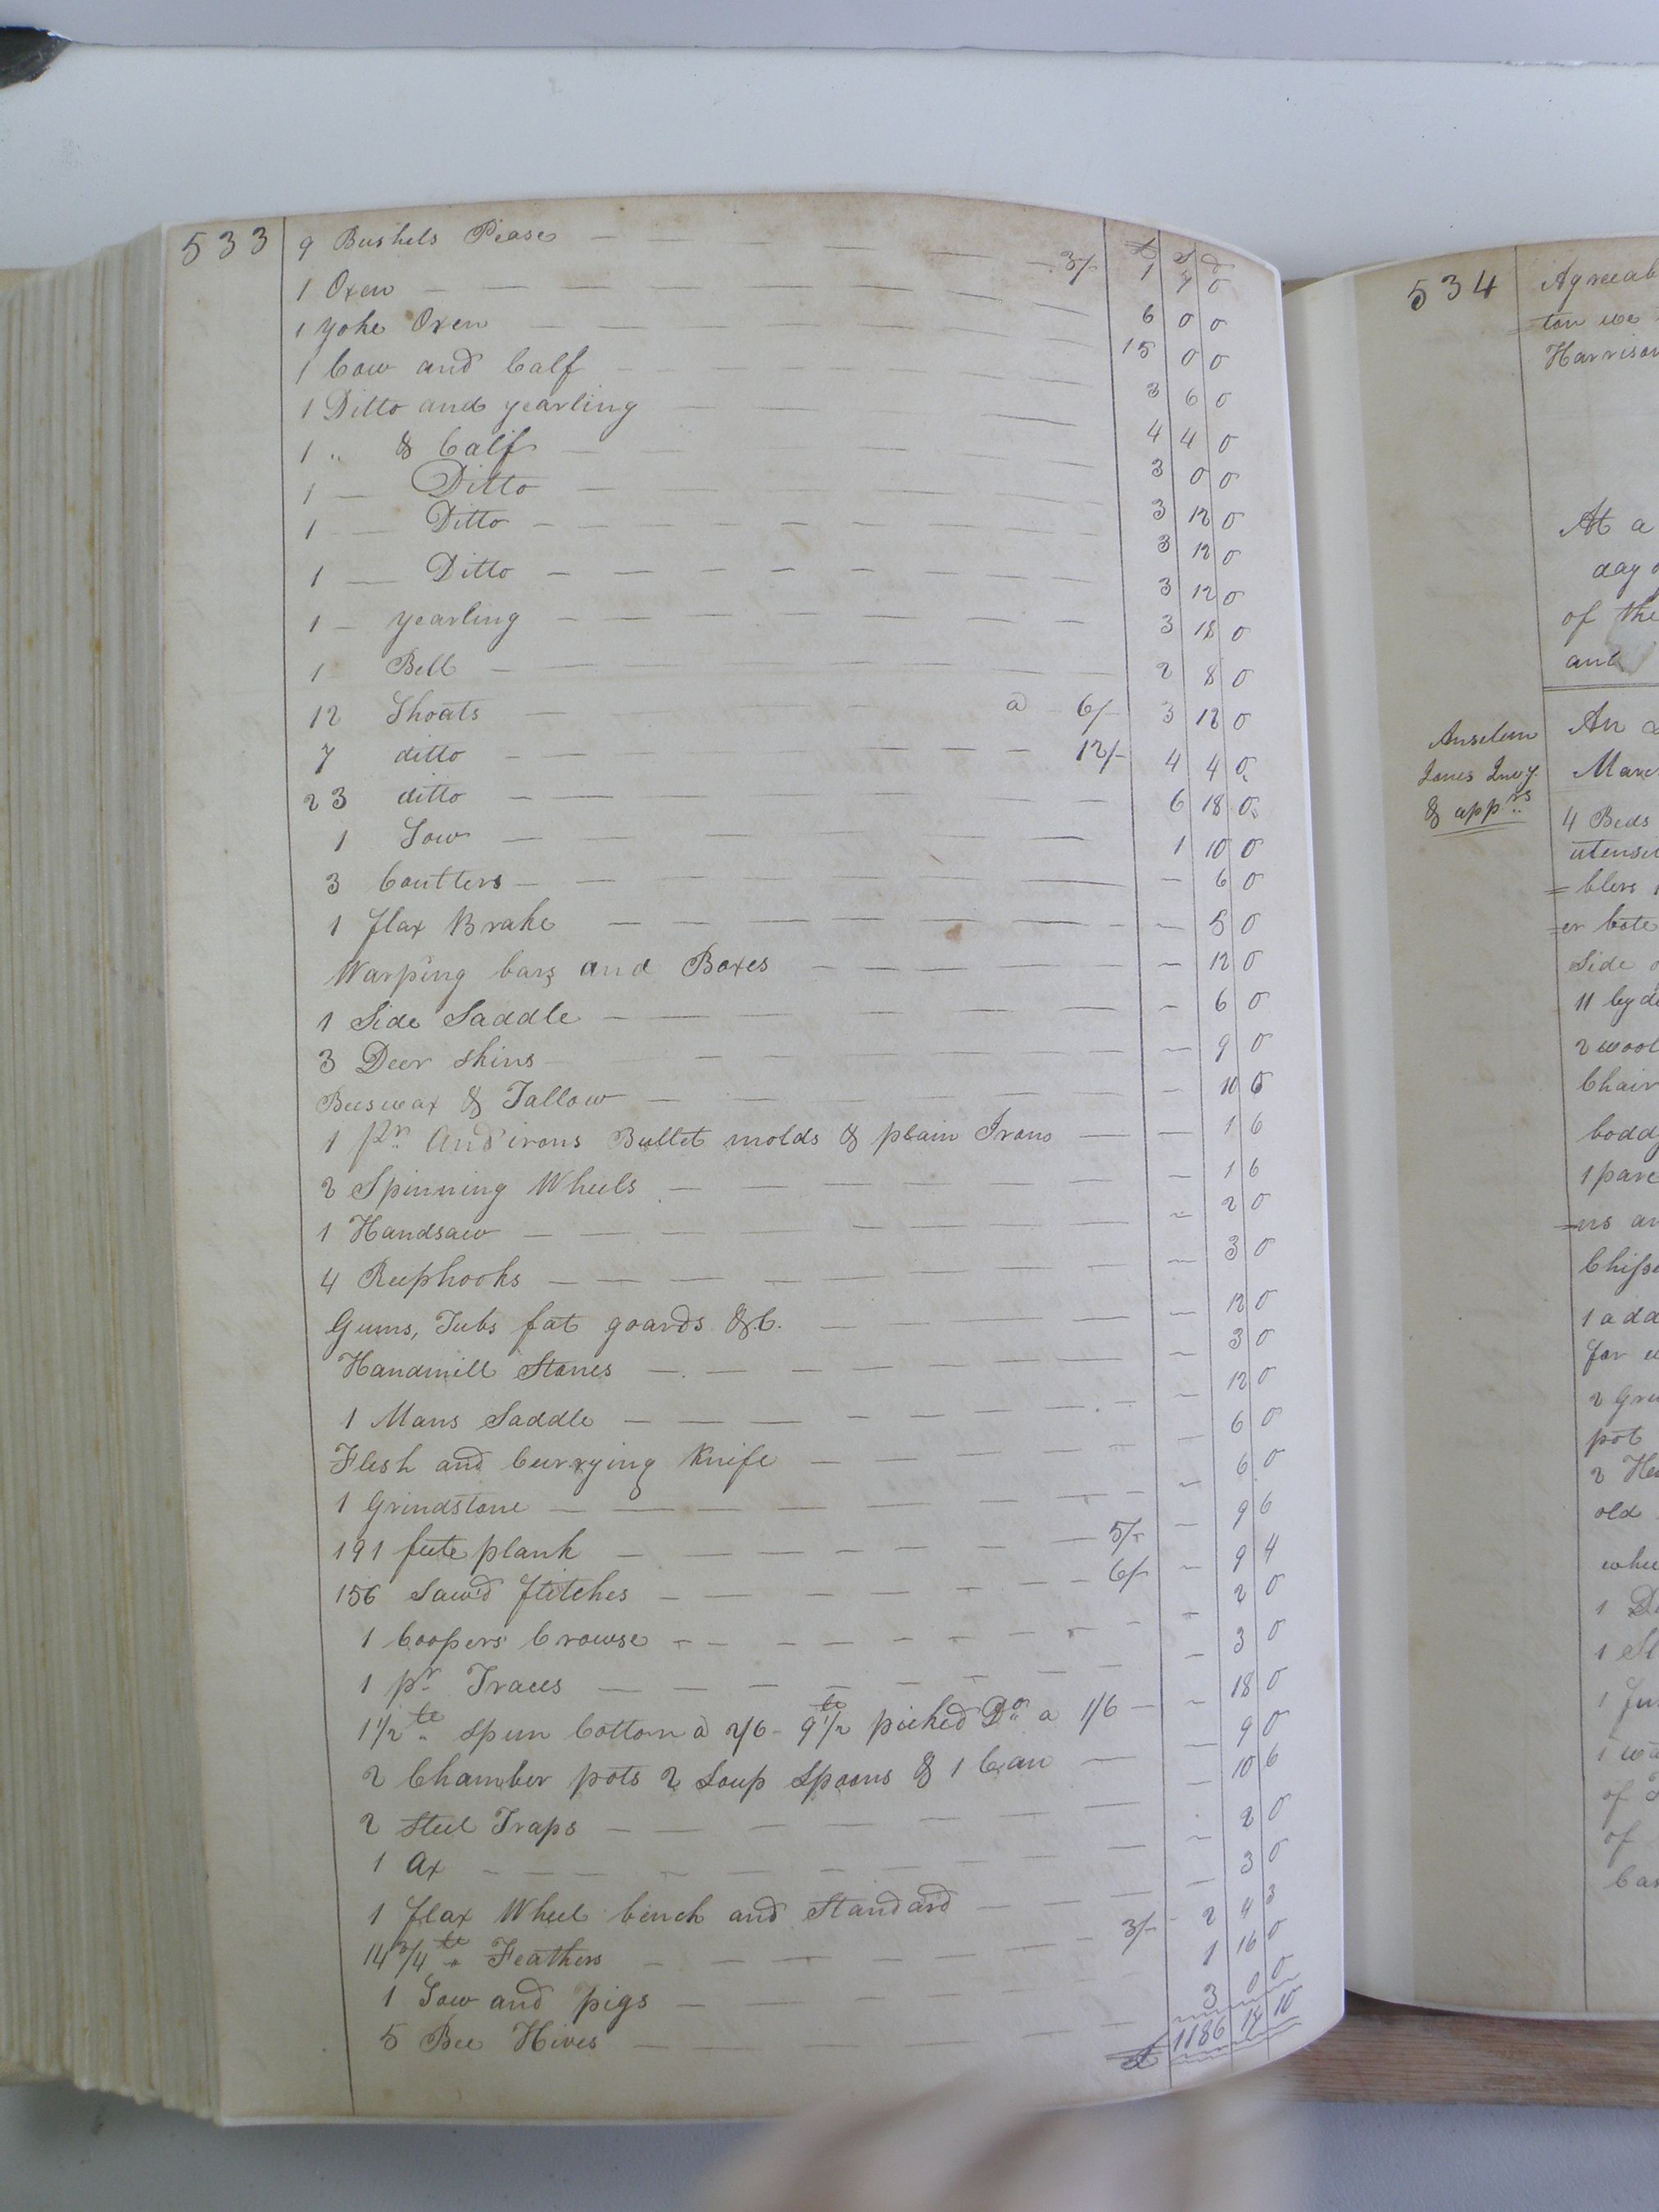 533
9 Bushels Pease — 3/- 1 7 0
£ S d
1 Oxen — 6 0 0
1 yoke Oxen — 15 0 0
1 Cow and Calf — 3 6 0
1 Ditto and yearling — 4 4 0
1 " & Calf — 3 0 0
1 — Ditto — 3 12 0
1 — Ditto — 3 12 0
1 — Ditto — 3 12 0
1 — yearling — 3 18 0
1 Bell — 2 8 0
12 Shoats — a 6/- 3 12 0
7 ditto — 12/- 4 4 0
23 ditto — 6 18 0
1 Sow — 1 10 0
3 Coutters — 6 0
1 flax Brake — 5 0
Warping bars and Boxes — 12 0
1 Side Saddle — 6 0
3 Deer skins — 9 0
Beeswax & Tallow — 10 6
1 pr. Andirons Bullet molds & plain Irons — 1 6
2 Spinning Wheels — 1 6
1 Handsaw — 2 0
4 Reephooks — 3 0
Gums, Tubs fat goards &C. — 12 0
Handmill Stones — 3 0
1 Mans Saddle — 12 0
Flesh and Currying Knife — 6 0
1 Grindstone — 6 0
191 feete plank — 5/- 9 6
156 Saw'd flitches — 6/- 9 4
1 Coopers Crowse — 2 0
1 pr. Traces — 3 0
1 1/2 lb spun Cotton a 2/6 - 9 1/2 lb picked Do. a 1/6 — 18 0
2 Chamber pots 2 Soup Spoons & 1 Can — 9 0
2 Steel Traps — 10 6
1 Ax — 2 0
1 flax Wheel bench and Standard — 3 0
14 3/4 lb Feathers — 3/- 2 4 3
1 Sow and pigs — 1 16 0
5 Bee Hives — 3 0 0
£ 1186 18 10
534
Agreeab
ton we
Harrison
At a
day o
of the
and
Anselem
Jones Invy.
& apprs
An
Marc
4 Beds
utensi
=blers
=er bote
Side
2 wool
Chair
boddy
1 pare
=ns an
Chisse
1 add
for
2 Gri
pot
2 He
old
whee
1
1
1
1
of
of